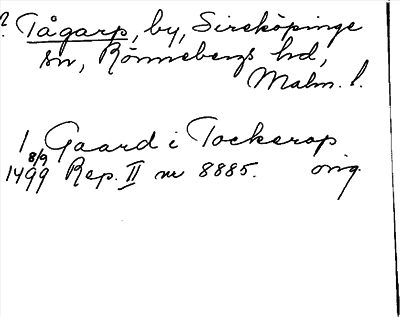 ? Tågarp, by, Sireköpinge
sn, Rönnebergs hd,
Malm. l.
1 Gaard i Tockerop
8/9
1499 Rep. II nr 8885. orig.